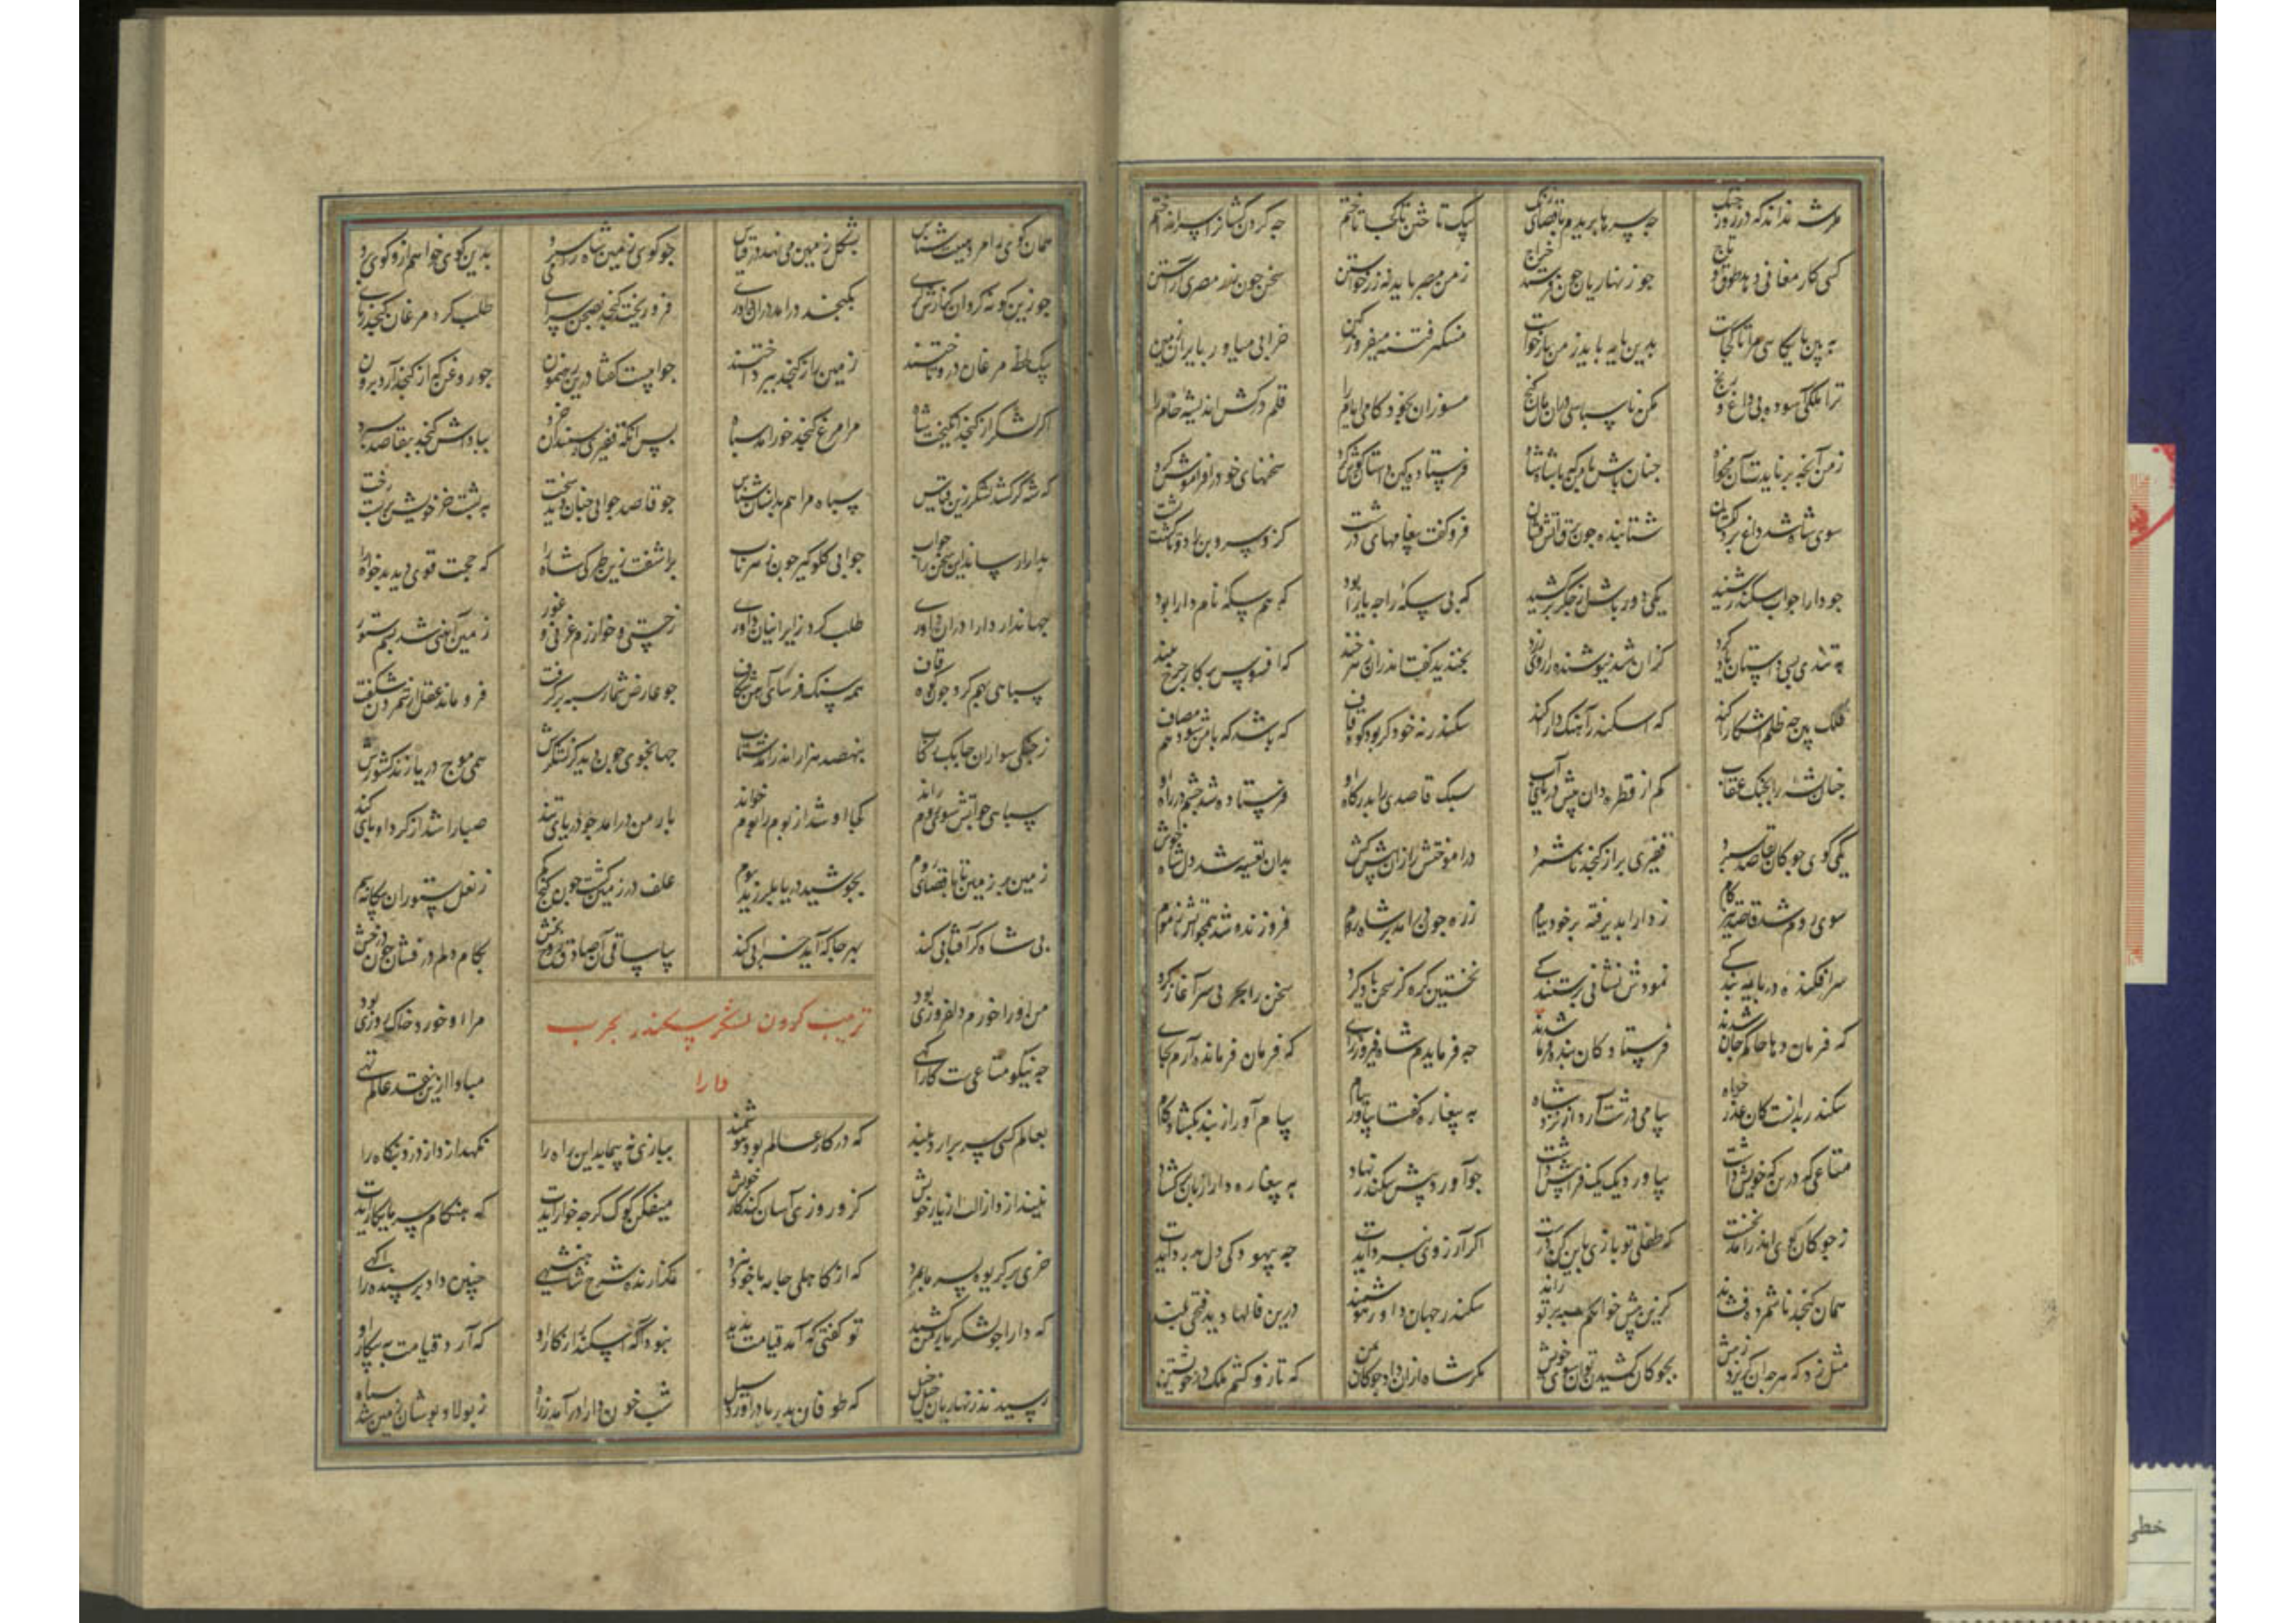 مگر شه نداند که در روز جنگ چه سرها بریدم باقصای زنگ بیک تاختن تا کجا تاختم چه گردن کشانرا سر انداختم
کسی کار مغانی دهد طوق و تاج چو زنهاریان چون فرستد خراج ز من مصر باید نه زر خواستن سخن چون بود مصری آراستن
به بین پایگاهی مرا تا کجاست بدین مایه باید ز من باز خواست فتنه میفروز کین خرابی میاور بایران زمین
ترا ملکی آسوده بی داغ و رنج مکن ناسپاسی دران مال و گنج مشوران بخود کامی ایام را قلم درکش اندیشه خام را
ز من آنچه بر نایدت آن مخواه چنان باش با من که با شاه شاه فرستاده کین داستان گوش کرد سخنهای خود را فراموش کرد
سوی شاه شد داغ بر دل کشان شتابنده چون برق آتش فشان فرو گفت پیغامهای درشت کزو سرو بن را دو تا گشت پشت
چو دارا جواب سکندر شنید یکی دور باش از جگر برکشید که بی سکه را چه یارا بود که هم سکه نام دارا بود
به تندی بسی داستان یاد کرد کزان شد نیوشنده را روی زرد بخندید گفت اندران زهر خند که افسوس بر کار چرخ بلند
فلک بین چه ظلم آشکارا کند که اسکندر آهنگ دارا کند سکندر نه خود گر بود کوه قاف که باشد که با من شود هم مصاف
چنان بجنگ عقاب کم از قطره دان پیش دریای آب سبک قاصدی را بدرگاه او فرستاده شد چشم در راه او
یکی گوی و چوگان بقاصد سپرد قفیزی پر از کنجد ناشمرد درآموختش راز آن پیش کش بدان تعبیه شد دل شاه خوش
سوی روم شد قاصد تیز گام ز دارا پذیرفته بر خود پیام ز ره چون درآمد بر شاه روم فروزنده شد همچو آتش ز موم
سرافکنده در پایه بندگی نمودش نشانی پرستندگی نخستین گره کز سخن باز کرد سخن را بچربی سرآغاز کرد
که فرمان دهان حاکم جان شدند فرستادگان بنده فرمان شدند چه فرمایدم شاه فیروز رای که فرمان فرمانده آرم بجای
سکندر بدانست کان عذر خواه پیامی درشت آرد از نزد شاه به پیغاره گفتا بیاور پیام پیام آور از بند بگشاد کام
متاعی که در سله خویش داشت بیاورد یک یک فراپیش داشت چو آورد پیش سکندر نهاد به پیغاره دارا زبان برگشاد
ز چوگان و گوی اندر آمد نخست که طفلی تو بازی باین کن درست اگر آرزوی نبرد آیدت چه بیهودگی دل بدرد آیدت
همان کنجد ناشمرده فشاند کزین بیش خواهم سپه بر تو راند سکندر جهان داور هوشمند درین فالها دید فتحی بلند
مثل زد که هرچه آن گریزد ز پیش بچوگان کشیدن توان سوی خویش مگر شاه ازان داد چوگان بمن که تا زو کشم ملک در خویشتن
همان گوی را مرد هیئت شناس بشکل زمین می نهد در قیاس چو گوی زمین شاه بر من سپرد بدین گوی خواهم ازو گوی برد
چو زین گونه کرد آن گزارش گری بکنجد درآمد دران داوری فرو ریخت کنجد بصحن سرای طلب کرد مرغان کنجد ربای
بیک لحظه مرغان درو تاختند زمین را ز کنجد بپرداختند جوابیست گفتا درین رهنمون چو روغن که از کنجد آرد برون
اگر لشکر از کنجد انگیخت شاه مرا مرغ کنجد خور آمد سپاه پس آنگه قفیزی سپندان خرد بپاداش کنجد بقاصد سپرد
که شه گر کشد لشکر زین قیاس سپاه مرا هم بدانسان شناس چو قاصد جوابی چنان دید سخت به پشت خر خویش بربست رخت
بدارا رساند این سخن را جواب جوابی گلوگیر چون زهر ناب برآشفت زین طیرگی شاه را که حجت قوی دید بدخواه را
جهاندار دارا دران داوری طلب کرد ز ایرانیان یاوری ز چین و خوارزم و غزنی و غور زمین آهنی شد ز سم ستور
سپاهی بهم کرد چون کوه قاف همه سنگ فرسای آهن شکاف چو عارض شمار سپه برگرفت فرو ماند عقل از شمردن شگفت
ز جنگی سواران چابک رکاب بنهصد هزار اندر آمد شتاب جهانجوی چون دید کز لشکرش همی موج دریا زند کشورش
سپاهی چو آتش سوی روم راند کجا او شد از بوم را بوم خواند بارمن درآمد چو دریای تند صبا را شد از گرد او پای کند
زمین در زمین تا باقصای روم بجوشید دریا بلرزید بوم علف در زمین گشت چون گنج گم ز نعل ستوران پیگانه سم
پی شاه گر آفتابی کند بهر جا که آید خرابی کند بیا ساقی آن صادق روح بخش بکام دلم درفشان چون درخش
من او را خورم دلفروزی بود مرا او خورد خاک روزی بود
ترتیب کردن لشکر سکندر بحرب
دارا
چه نیکو متاعیست کار آگهی مبادا ازین نقد عالم تهی
بعالم کسی سر برآرد بلند که در کار عالم بود هوشمند ببازی نپیماید این راه را نگهدارد از دزد بنگاه را
نیندازد از آلت از بار خویش کزو روزی آسان کند کار خویش میفکن کول گرچه خوار آیدت که هنگام سرما بکار آیدت
خری بر گریوه بسرما بمرد که از کاهلی جامه با خود نبرد گزارنده شرح شاهنشهی چنین داد پرسنده را آگهی
که دارا چو لشکر بارمن کشید تو گفتی که آمد قیامت پدید نبود آگه اسکندر از کار او که آرد قیامت به پیکار او
رسیدند زنهاریان خیل خیل که طوفان بدریا درآورد سیل شب خون دارا درآمد ز راه ز پولاد پوشان زمین شد سیاه
خطی